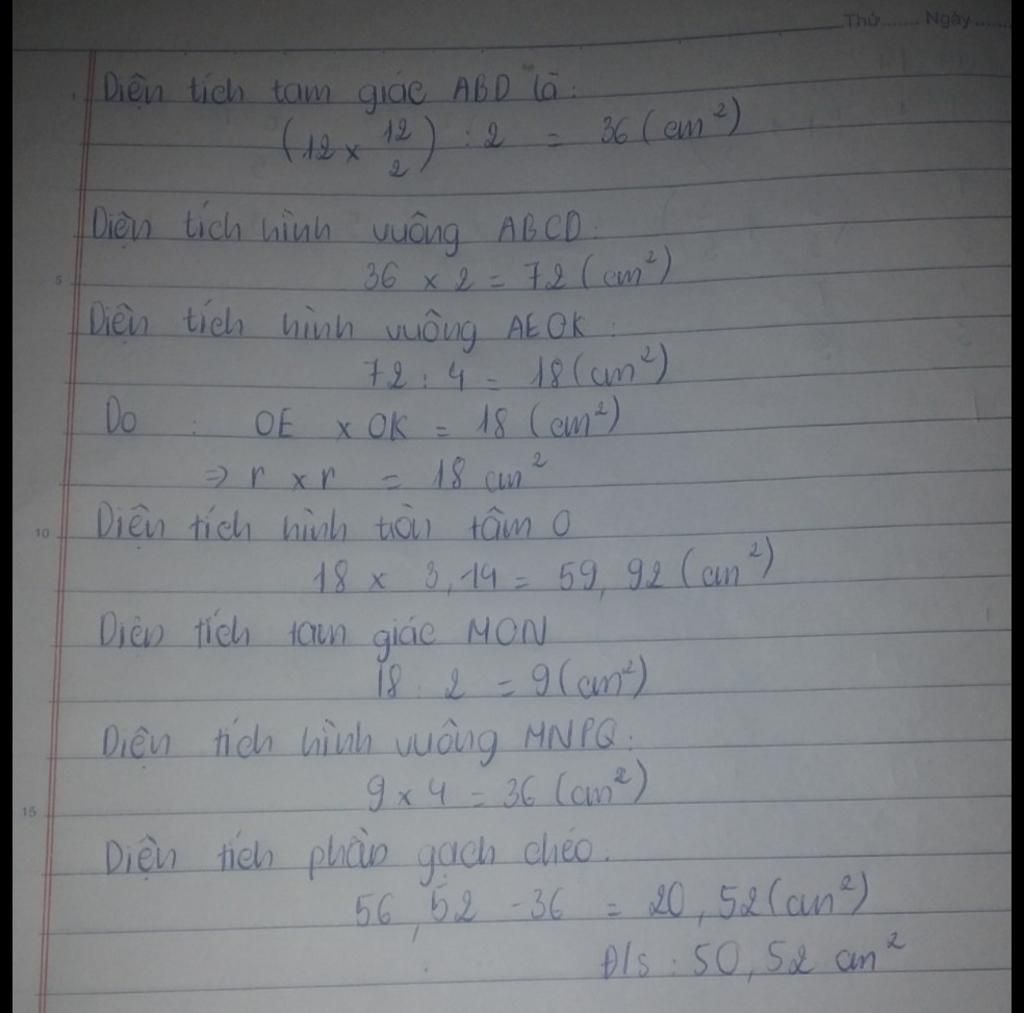 Thứ....... Ngày.......
Diện tích tam giác ABD là :
(12 x 12/2) : 2 = 36 (cm²)
Diện tích hình vuông ABCD.
36 x 2 = 72 (cm²)
5
Diện tích hình vuông AEOK :
72 : 4 = 18 (cm²)
Do : OE x OK = 18 (cm²)
⇒ r x r = 18 cm²
10
Diện tích hình tròn tâm O
18 x 3,14 = 59,92 (cm²)
Diện tích tam giác MON
18 : 2 = 9 (cm²)
Diện tích hình vuông MNPQ :
9 x 4 = 36 (cm²)
15
Diện tích phần gạch chéo.
56,52 - 36 = 20,52 (cm²)
Đ/s : 50,52 cm²